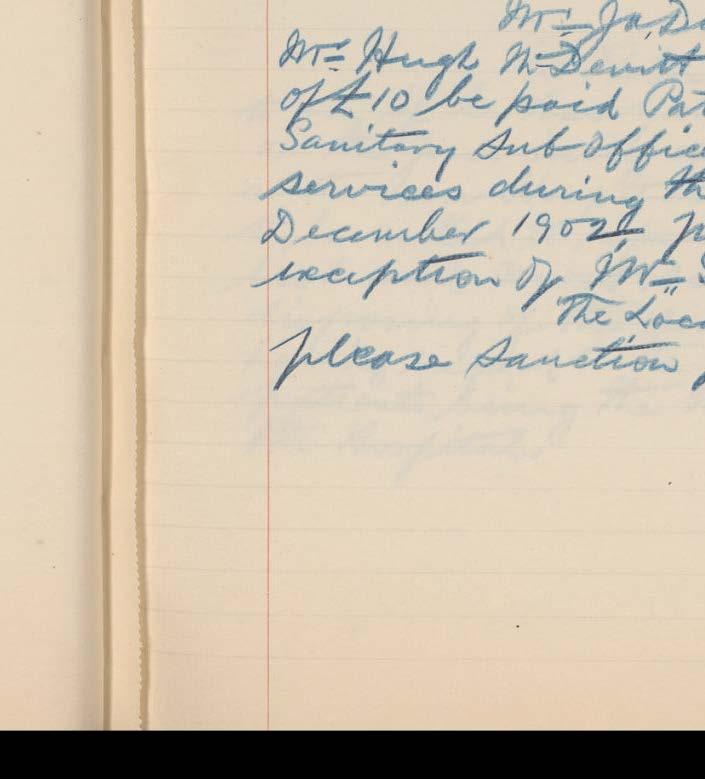 Mr. Ja. D
Mr. Hugh McDevitt
of £10 be paid Pat
Sanitary Sub Office
services during th
December 1902
exception of Mr. S
"The Loca
please sanction